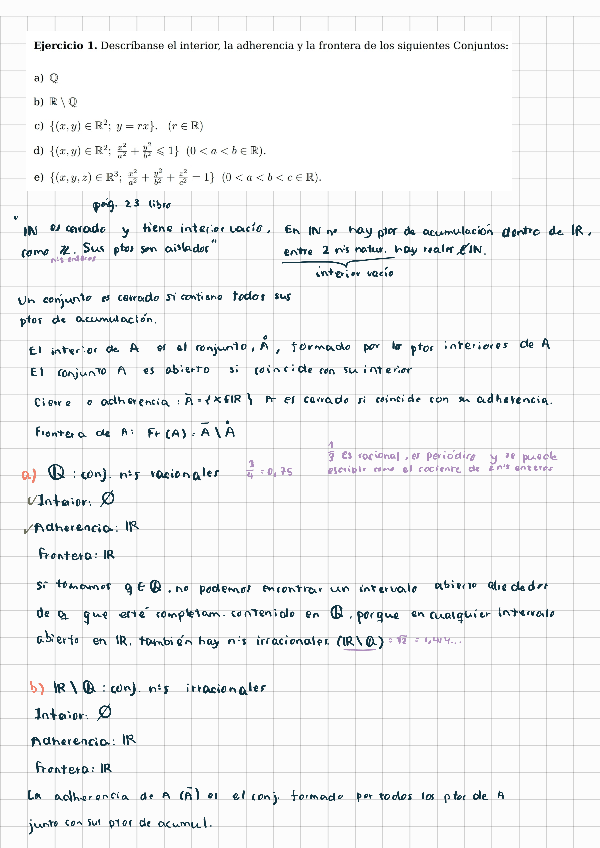 Ejercicio 1. Descríbanse el interior, la adherencia y la frontera de los siguientes Conjuntos:
a) ℚ
b) ℝ \ ℚ
c) {(x, y) ∈ ℝ²; y = rx}. (r ∈ ℝ)
d) {(x, y) ∈ ℝ²; x²/a² + y²/b² ⩽ 1} (0 < a < b ∈ ℝ).
e) {(x, y, z) ∈ ℝ³; x²/a² + y²/b² + z²/c² = 1} (0 < a < b < c ∈ ℝ).
pág. 23 libro
"IN es cerrado y tiene interior vacío, En IN no hay ptos de acumulación dentro de IR,
como ℤ. Sus ptos son aislados" entre 2 nºs natur. hay reales ∉ IN.
nºs enteros
interior vacío
Un conjunto es cerrado si contiene todos sus
ptos de acumulación.
El interior de A es el conjunto, Å, formado por los ptos interiores de A
El conjunto A es abierto si coincide con su interior
Cierre o adherencia: Ā = {x ∈ IR } A es cerrado si coincide con su adherencia.
Frontera de A: Fr (A) = Ā \ Å
1/3 es racional, es periódico y se puede
a) ℚ : conj. nºs racionales 3/4 = 0,75 escribir como el cociente de 2 nºs enteros
✓ Interior: ∅
✓ Adherencia: IR
Frontera: IR
Si tomamos q ∈ ℚ, no podemos encontrar un intervalo abierto alrededor
de q que esté completam. contenido en ℚ, porque en cualquier intervalo
abierto en IR, también hay nºs irracionales (IR \ ℚ) = √2 = 1,414...
b) IR \ ℚ : conj. nºs irracionales
Interior: ∅
Adherencia: IR
Frontera: IR
La adherencia de A (Ā) es el conj. formado por todos los ptos de A
junto con sus ptos de acumul.